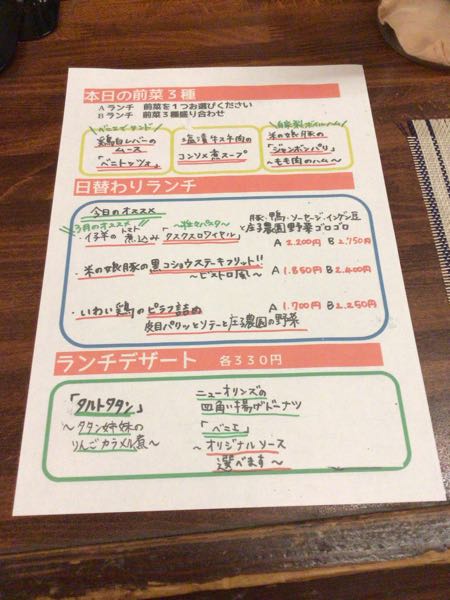 本日の前菜3種
Aランチ 前菜を1つお選びください
Bランチ 前菜3種盛り合わせ
鶏白レバーの
ムース
「ベニトッツォ」
塩漬牛スネ肉の
コンソメ煮スープ
自家製ボイルハム
米の娘豚の
「ジャンボンパリ」
~もも肉のハム~
日替わりランチ
今日のオススメ
3月のオススメ
・仔羊のトマト煮込み「クスクスロワイヤル」
豚・鴨・ソーセージ・インゲン豆
と庄子農園野菜ゴロゴロ
A 2,200円 B 2,750円
・米の娘豚の黒コショウステーキフリット!!
~ビストロ風~
A 1,850円 B 2,400円
・いわい鶏のピラフ詰め
A 1,700円 B 2,250円
皮目パリッとソテーと庄子農園の野菜
ランチデザート 各330円
「タルトタタン」
~タタン姉妹の
りんごカラメル煮~
ニューオリンズの
四角い揚げドーナツ
「ベニエ」
~オリジナルソース
選べます~